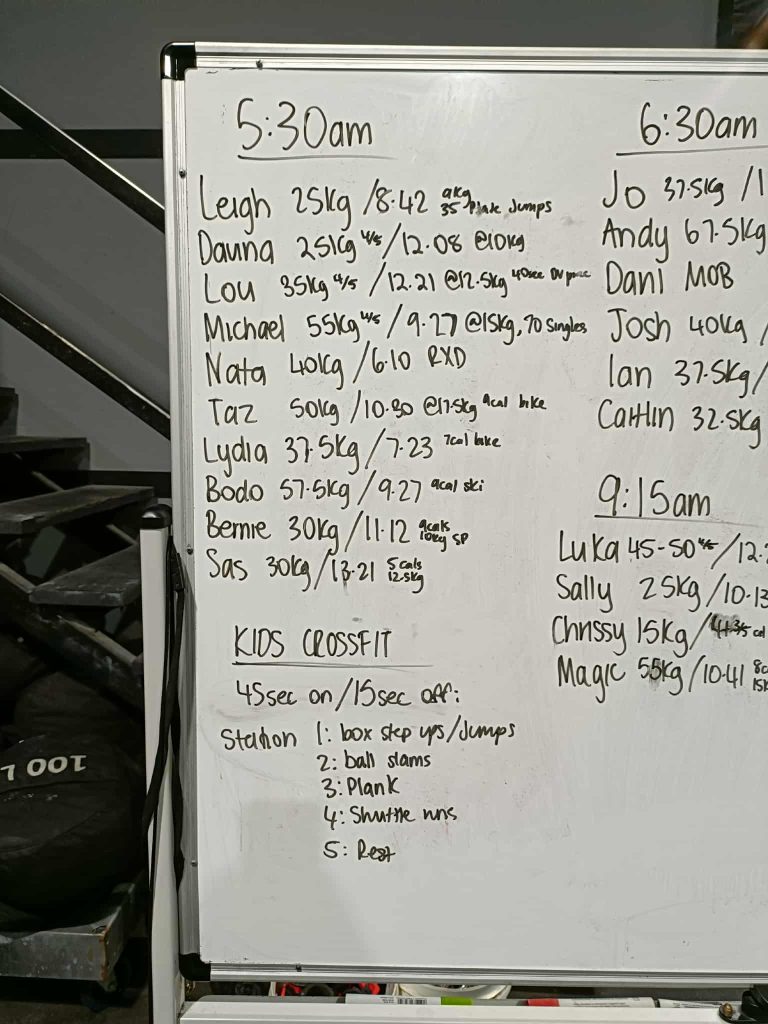 5:30am
Leigh 25kg /8.42 9kg 35 Plate Jumps
Danna 25kg 4/5 /12.08 @10kg
Lou 35kg 4/5 /12.21 @12.5kg 40sec DU
Michael 55kg 4/5 /9.27 @15kg, 70 singles
Nata 40kg /6.10 RXD
Taz 50kg /10.30 @17.5kg 9cal bike
Lydia 37.5kg /7.23 7cal bike
Bodo 57.5kg /9.27 9cal ski
Bernie 30kg /11.12 9cals 10kg SP
Sas 30kg /13.21 5cals 12.5kg
KIDS CROSSFIT
45sec on /15sec off:
Station 1: box step ups/Jumps
2: ball slams
3: Plank
4: Shuttle runs
5: Rest
6:30am
Jo 37.5kg /1
Andy 67.5kg
Dani MOB
Josh 40kg /
Ian 37.5kg/
Caitlin 32.5kg
9:15am
Luka 45-50 4/5 /12.
Sally 25kg /10.13
Chrissy 15kg/ cal
Magic 55kg /10.41 8c 15k
100 L